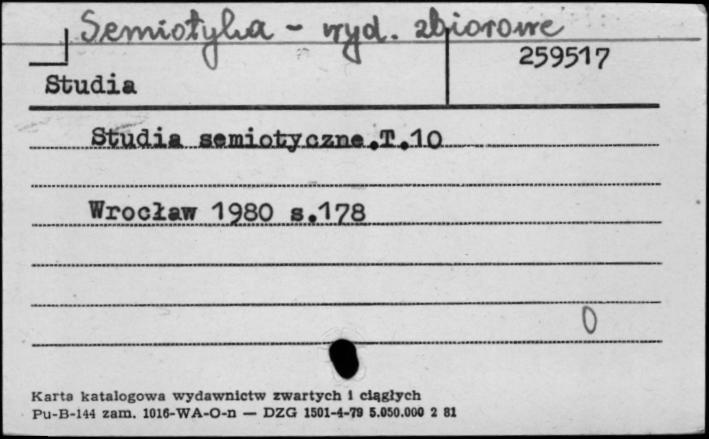 Semiotyka - wyd. zbiorowe
259517
Studia
Studia semiotyczne.T.10
Wrocław 1980 s.178
0
Karta katalogowa wydawnictw zwartych i ciągłych
Pu-B-144 zam. 1016-WA-O-n — DZG 1501-4-79 5.050.000 2 81